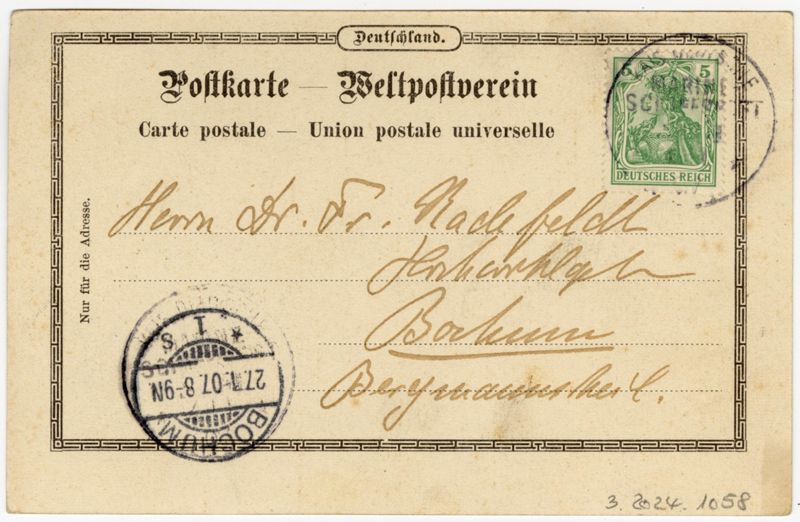 Deutschland.
Postkarte — Weltpostverein
Carte postale — Union postale universelle
5
DEUTSCHES REICH
MARINE
Herrn Dr. Fr. Rackfeldt
Bochum
Nur für die Adresse.
27.1.07.8-9N
BOCHUM
3. 2024. 1058